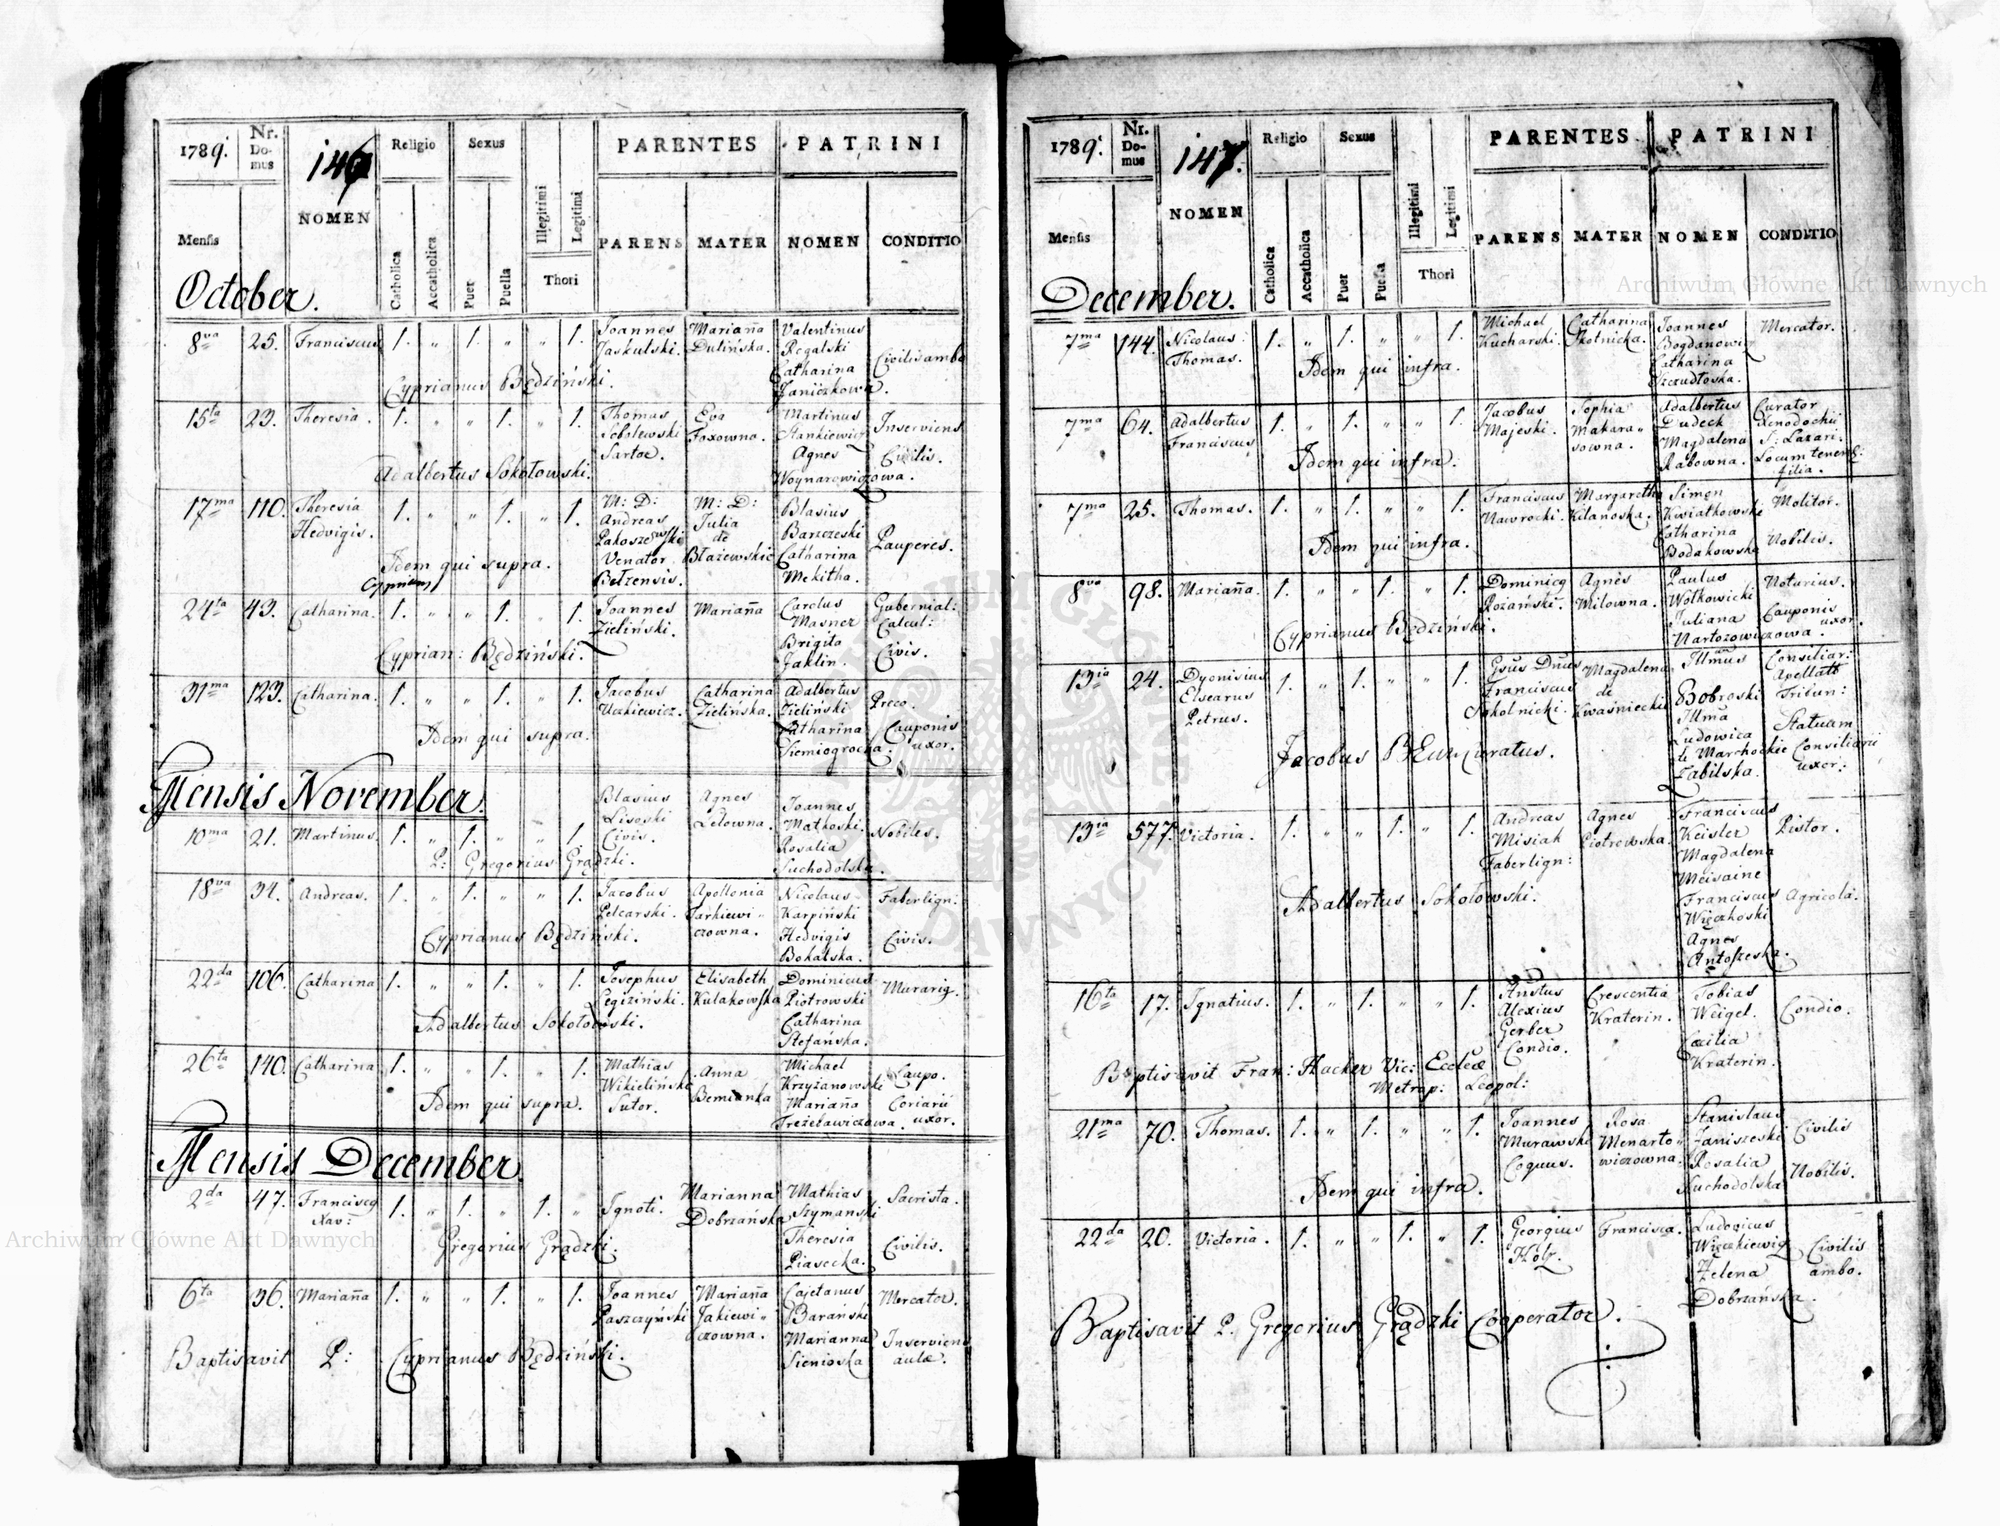 1789.
Nr. Domus
146
NOMEN
Religio
Sexus
PARENTES
PATRINI
Mensis
Catholica
Accatholica
Puer
Puella
Illegitimi
Legitimi
Thori
PARENS
MATER
NOMEN
CONDITIO
October.
8va 25. Franciscus 1. „ 1. „ „ 1. Joannes Mariana Valentinus
Jaskulski. Dulińska. Rogalski
Catharina Civilis ambo
Cyprianus Będziński. Janiczkowa.
15ta 23. Theresia. 1. „ „ 1. „ 1. Thomas Eva Martinus Inserviens
Sobolewski Foxowna. Stankiewicz
Sartor. Agnes Civilis.
Adalbertus Sokołowski. Woynarowiczowa.
17ma 110. Theresia 1. „ „ 1. „ 1. M: D: M: D: Blasius
Hedvigis. Andreas Julia Barzczeski
Pakoszewski de Catharina Pauperes.
Idem qui supra. Venator Błażewskie Mekitha.
Cyprian Bełzensis.
24ta 43. Catharina. 1. „ „ 1. „ 1. Joannes Mariana Carolus Gubernial:
Zieliński. Masner Calcul:
Brigita
Cyprian: Będziński. Jaklin. Civis.
31ma 123. Catharina. 1. „ „ 1. „ 1. Jacobus Catharina Adalbertus
Uzkiewicz. Zielińska. Zieliński Preco.
Idem qui supra. Catharina Cauponis
Siemiogrocka. uxor.
Mensis November.
10ma 21. Martinus. 1. „ 1. „ „ 1. Blasius Agnes Joannes
Lisoski Lelowna. Matkoski. Nobiles.
Civis. Rosalia
P: Gregorius Grądzki. Suchodolska.
18va 34. Andreas. 1. „ 1. „ „ 1. Jacobus Apollonia Nicolaus Faberlign:
Pelcarski. Tarkiewi- Karpiński
czowna. Hedvigis Civis.
Cyprianus Będziński. Bokalska.
22da 106. Catharina 1. „ „ 1. „ 1. Josephus Elisabeth Dominicus Murarig.
Legiziński. Kulakowska Piotrowski
Catharina
Adalbertus Sokołowski. Stefańska.
26ta 140. Catharina 1. „ „ 1. „ 1. Mathias Anna Michael
Wikieliński Bernianka Krzyżanowski Caupo.
Idem qui supra. Sutor. Mariana Coriarii
Treżelawiczowa. uxor.
Mensis December.
2da 47. Franciscq 1. „ 1. „ 1. „ Ignoti. Marianna Mathias Sacrista.
Xav: Dobrzańska Szymanski
Gregorius Grądzki. Theresia Civilis.
Piasecka.
6ta 36. Mariana 1. „ „ 1. „ 1. Joannes Mariana Cajetanus Mercator.
Paszczyński Jakiewi- Barański
czowna. Marianna Inserviens
Baptisavit P: Cyprianus Będziński. Sienioska aulæ.
1789.
Nr. Domus
147.
NOMEN
Religio
Sexus
PARENTES
PATRINI
Mensis
Catholica
Accatholica
Puer
Puella
Illegitimi
Legitimi
Thori
PARENS
MATER
NOMEN
CONDITIO
December.
7ma 144. Nicolaus: 1. „ 1. „ „ 1. Michael Catharina Joannes Mercator.
Thomas. Kucharski. Płotnicka. Bogdanowicz
Idem qui infra. Catharina
Szczudłoska.
7ma 64. Adalbertus 1. „ 1. „ „ 1. Jacobus Sophia Adalbertus Curator
Franciscus Majeski. Makara- Dudeck Xenodochii
sowna. Magdalena S: Lazari:
Idem qui infra. Rabowna. Locum tenent:
filia.
7ma 25. Thomas. 1. „ 1. „ „ 1. Franciscus Margaretha Simon Molitor.
Nawrocki. Kilanoska. Kwiatkowski
Idem qui infra. Catharina Nobilis.
Bodakowska
8va 98. Mariana. 1. „ „ 1. „ 1. Dominicq Agnes Paulus Notarius.
Rozański. Milowna. Wolkowicki
Juliana Cauponis
Cyprianus Będziński. Nartozowiczowa. uxor.
13ia 24. Dyonisius 1. „ 1. „ „ 1. Gsus Dnus Magdalena Illmus Consiliar:
Elsearus Franciscus de Bobroski Apellatt
Petrus. Sokolnicki. Kwaśniecki Illma Tribun:
Ludowica Statuam
Jacobus B Curatus. de Marchockie Consiliarii
Zabilska. uxor:
13ia 577. Victoria. 1. „ „ 1. „ 1. Andreas Agnes Franciscus
Misiak Piotrowska. Keisler Pistor.
Faberlign: Magdalena
Meisaine
Adalbertus Sokołowski. Franciscus Agricola.
Więczkoski
Agnes
Antoszeska.
16ta 17. Ignatius. 1. „ 1. „ „ 1. Alexius Crescentia Tobias
Gerber Kraterin. Weigel. Condio.
Condio. Cæcilia
Baptisavit Fran: Hacker Vic: Eccleæ Kraterin.
Metrop: Leopol:
21ma 70. Thomas. 1. „ 1. „ „ 1. Joannes Rosa Stanislaus
Murawski Menarto- Janiszeski Civilis
Coquus. wiczowna. Rosalia
Idem qui infra. Suchodolska Nobilis.
22da 20. Victoria. 1. „ „ 1. „ 1. Georgius Francisca. Ludovicus
Holz. Więckiewicz Civilis
Helena ambo.
Dobrzańska.
Baptisavit P. Gregorius Grądzki Cooperator.
Archiwum Główne Akt Dawnych
Archiwum Główne Akt Dawnych
ARCHIWUM GŁÓWNE AKT DAWNYCH